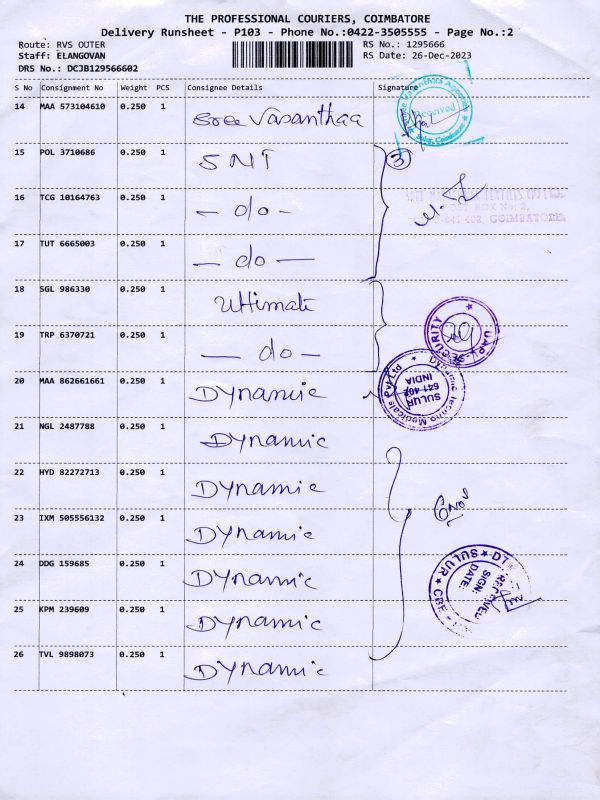 THE PROFESSIONAL COURIERS, COIMBATORE
Delivery Runsheet - P103 - Phone No.:0422-3505555 - Page No.:2
Route: RVS OUTER
RS No.: 1295666
Staff: ELANGOVAN
RS Date: 26-Dec-2023
DRS No.: DCJB129566602
S No Consignment No Weight PCS Consignee Details Signature
14 MAA 573104610 0.250 1 Sree Vasanthaa
Received
15 POL 3710686 0.250 1 SNT 3
16 TCG 10164763 0.250 1 - do -
641 402, COIMBATORE
17 TUT 6665003 0.250 1 - do -
18 SGL 986330 0.250 1 Ultimate
SECURITY
19 TRP 6370721 0.250 1 - do -
20 MAA 862661661 0.250 1 Dynamic
Dynamic Techno Medicals Pvt Ltd
SULUR
641 402
INDIA
21 NGL 2487788 0.250 1 Dynamic
22 HYD 82272713 0.250 1 Dynamic
6 Nos
23 IXM 505556132 0.250 1 Dynamic
24 DDG 159685 0.250 1 Dynamic
SULUR ★ DT
CBE
RECEIVED
SIGN:
DATE:
25 KPM 239609 0.250 1 Dynamic
26 TVL 9898073 0.250 1 Dynamic